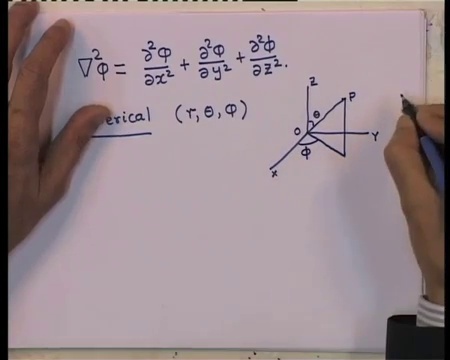 ∇²φ = ∂²φ/∂x² + ∂²φ/∂y² + ∂²φ/∂z².
erical (r, θ, φ)
Z
P
θ
O
Y
φ
X